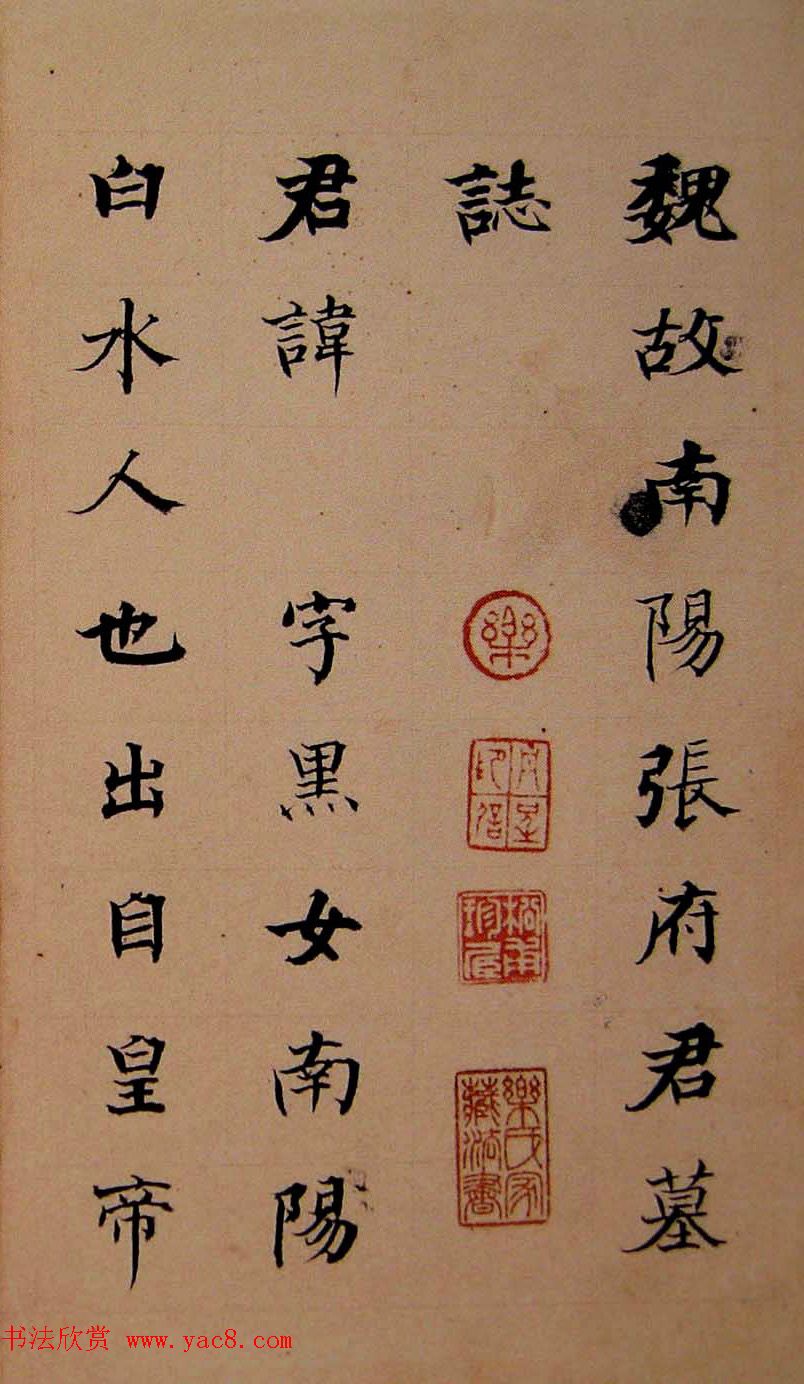 魏故南陽張府君墓
誌
君諱 字黑女南陽
白水人也出自皇帝
樂
樂氏家藏法書
书法欣赏 www.yac8.com